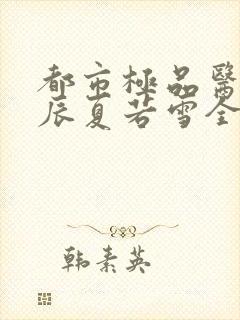 都市極品醫
辰夏若雪全
韩素英